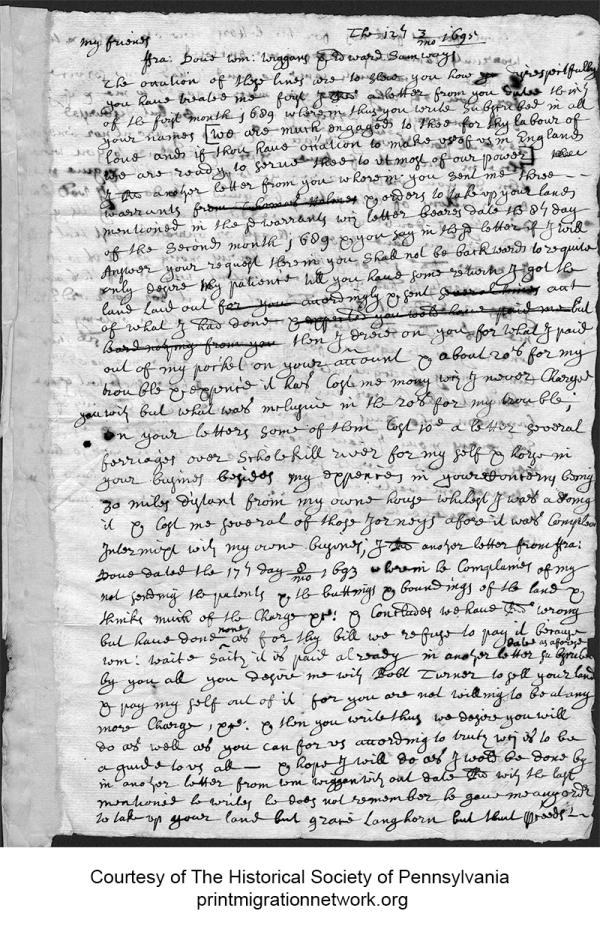 The 12th 3/mo 1695
my friends
ffra: Dove wm: wiggans & Edward Samways
The ocation of these lines are to shew you how disrespectfully
you have treated me first I had a letter from you dated the
of the first month 1689 wherein thus you write Subscribed in all
your names [we are much engaged to thee for thy labour of
love and if thou have ocation to make use of us in England
we are ready to serve thee to utmost of our power]
I had another letter from you wherein you sent me three
warrants from Thomas Holmes & orders to take up your lands
mentioned in the sd warrants wch letter beares date the 8th day
of the Second month 1689 & you say in the sd letter if I will
Answer your request therein you Shall not be backward to requite
only desire my patience till you have some returne I got the
land laid out for you accordingly & sent Several times acct
of what I had done & expected you would have paid me but
heard nothing from you then I drew on you for what I paid
out of my pocket on your account & about 20s for my
trouble & expence it has Cost me mony wch I never Charged
you with but what was inclusive in the 20s for my trouble;
on your letters some of them Cost 10d a letter several
ferriages over Scholekill river for my self & horse in
your busines besides my expences in your Contery being
30 miles distant from my owne house whilest I was adoing
it & Cost me several of those Jorneys afore it was Compleat
Intermixt with my owne busines; I had another letter from ffra:
Dove dated the 17th day 8/mo 1693 wherein he Complaines of my
not sending the patents & the buttings & boundings of the land &
thinks much of the Charge &c: & Concludes we have this wrong
but have done none as for thy bill we refuse to pay it because
wm: waite Saith it is paid already in another letter dated as afore Subscribed
by you all you desire me with Robt Turner to sell your land
& pay my self out of it for you are not willing to be at any
more Charge, &c. & then you write thus we desire you will
do as well as you can for us according to truth wch is to be
a guide to us all — & hope I will do as I would be done by
in another letter from wm wiggan without date with the last
mentioned he writes he does not remember he gave me any order
to take up your land but grave Langhorn but that
Courtesy of The Historical Society of Pennsylvania
printmigrationnetwork.org